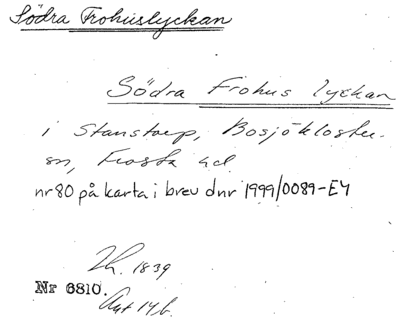 Södra Frohuslyckan
Södra Frohus lyckan
i Stanstorp, Bosjökloster
sn, Frosta hd
nr 80 på karta i brev dnr 1999/0089-E4
1839
Nr 6810.